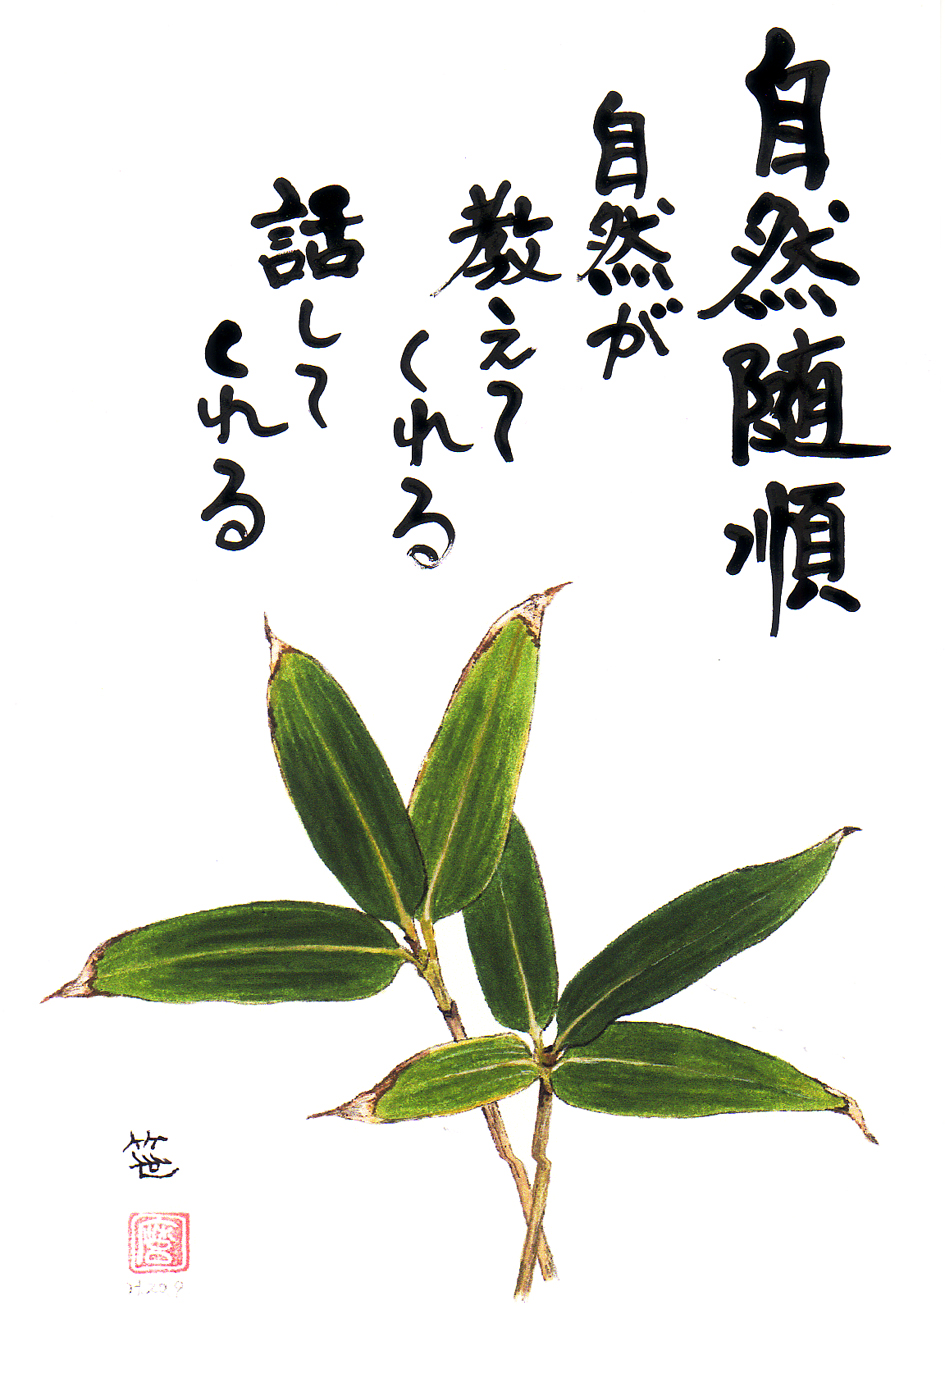 自然随順
自然が
教えて
くれる
話して
くれる
H20.9